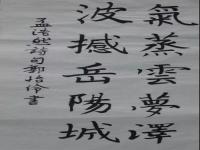 氣蒸雲夢澤
波撼岳陽城
孟浩然詩句鄭怡伶書